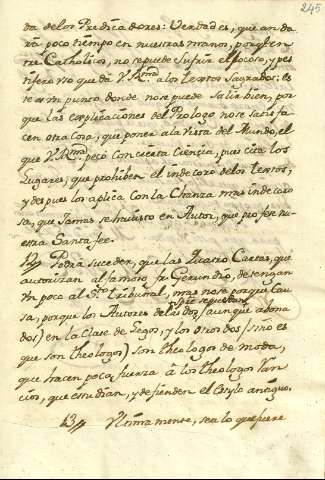 245
da delos Predicadores: Verdad es, que an da
rà poco tiempo en nuestras manos, porq̃ en
tre Catholicos, no se puede sufrir el focoso, y pes
tifero uso que dà V. Rma. alos textos Sagrados: es
te es un punto donde nose puede salir bien, por
que las explicaciones del Prologo nose satisfa
cen otra cosa, que poner ala Vista del Mundo, el
que V. Rma. pecò con cierta Ciencia, pues cita los
lugares, que prohiben el indecoro delos textos,
y despues los aplica con la Chanza mas indecoro
sa, que Jamas se ha visto en Autor, que profese nu
estra Santa fee.
12 Podrà suceder, que las Quatro Cartas, que
autorizan al famoso fr. Gerundio, detengan
un poco al Sto. Tribunal, mas nose porque Cau
sa, porque los Autores delas dos (aunque adona
dos) en la Clase de Legos, y los otros dos (sino es
que son theologos) son theologos de moda,
que hacen poca fuerza â los theologos Ran
cios, que estudian, y defienden el estylo antiguo.
13 Ultimamente, sea lo que fuere